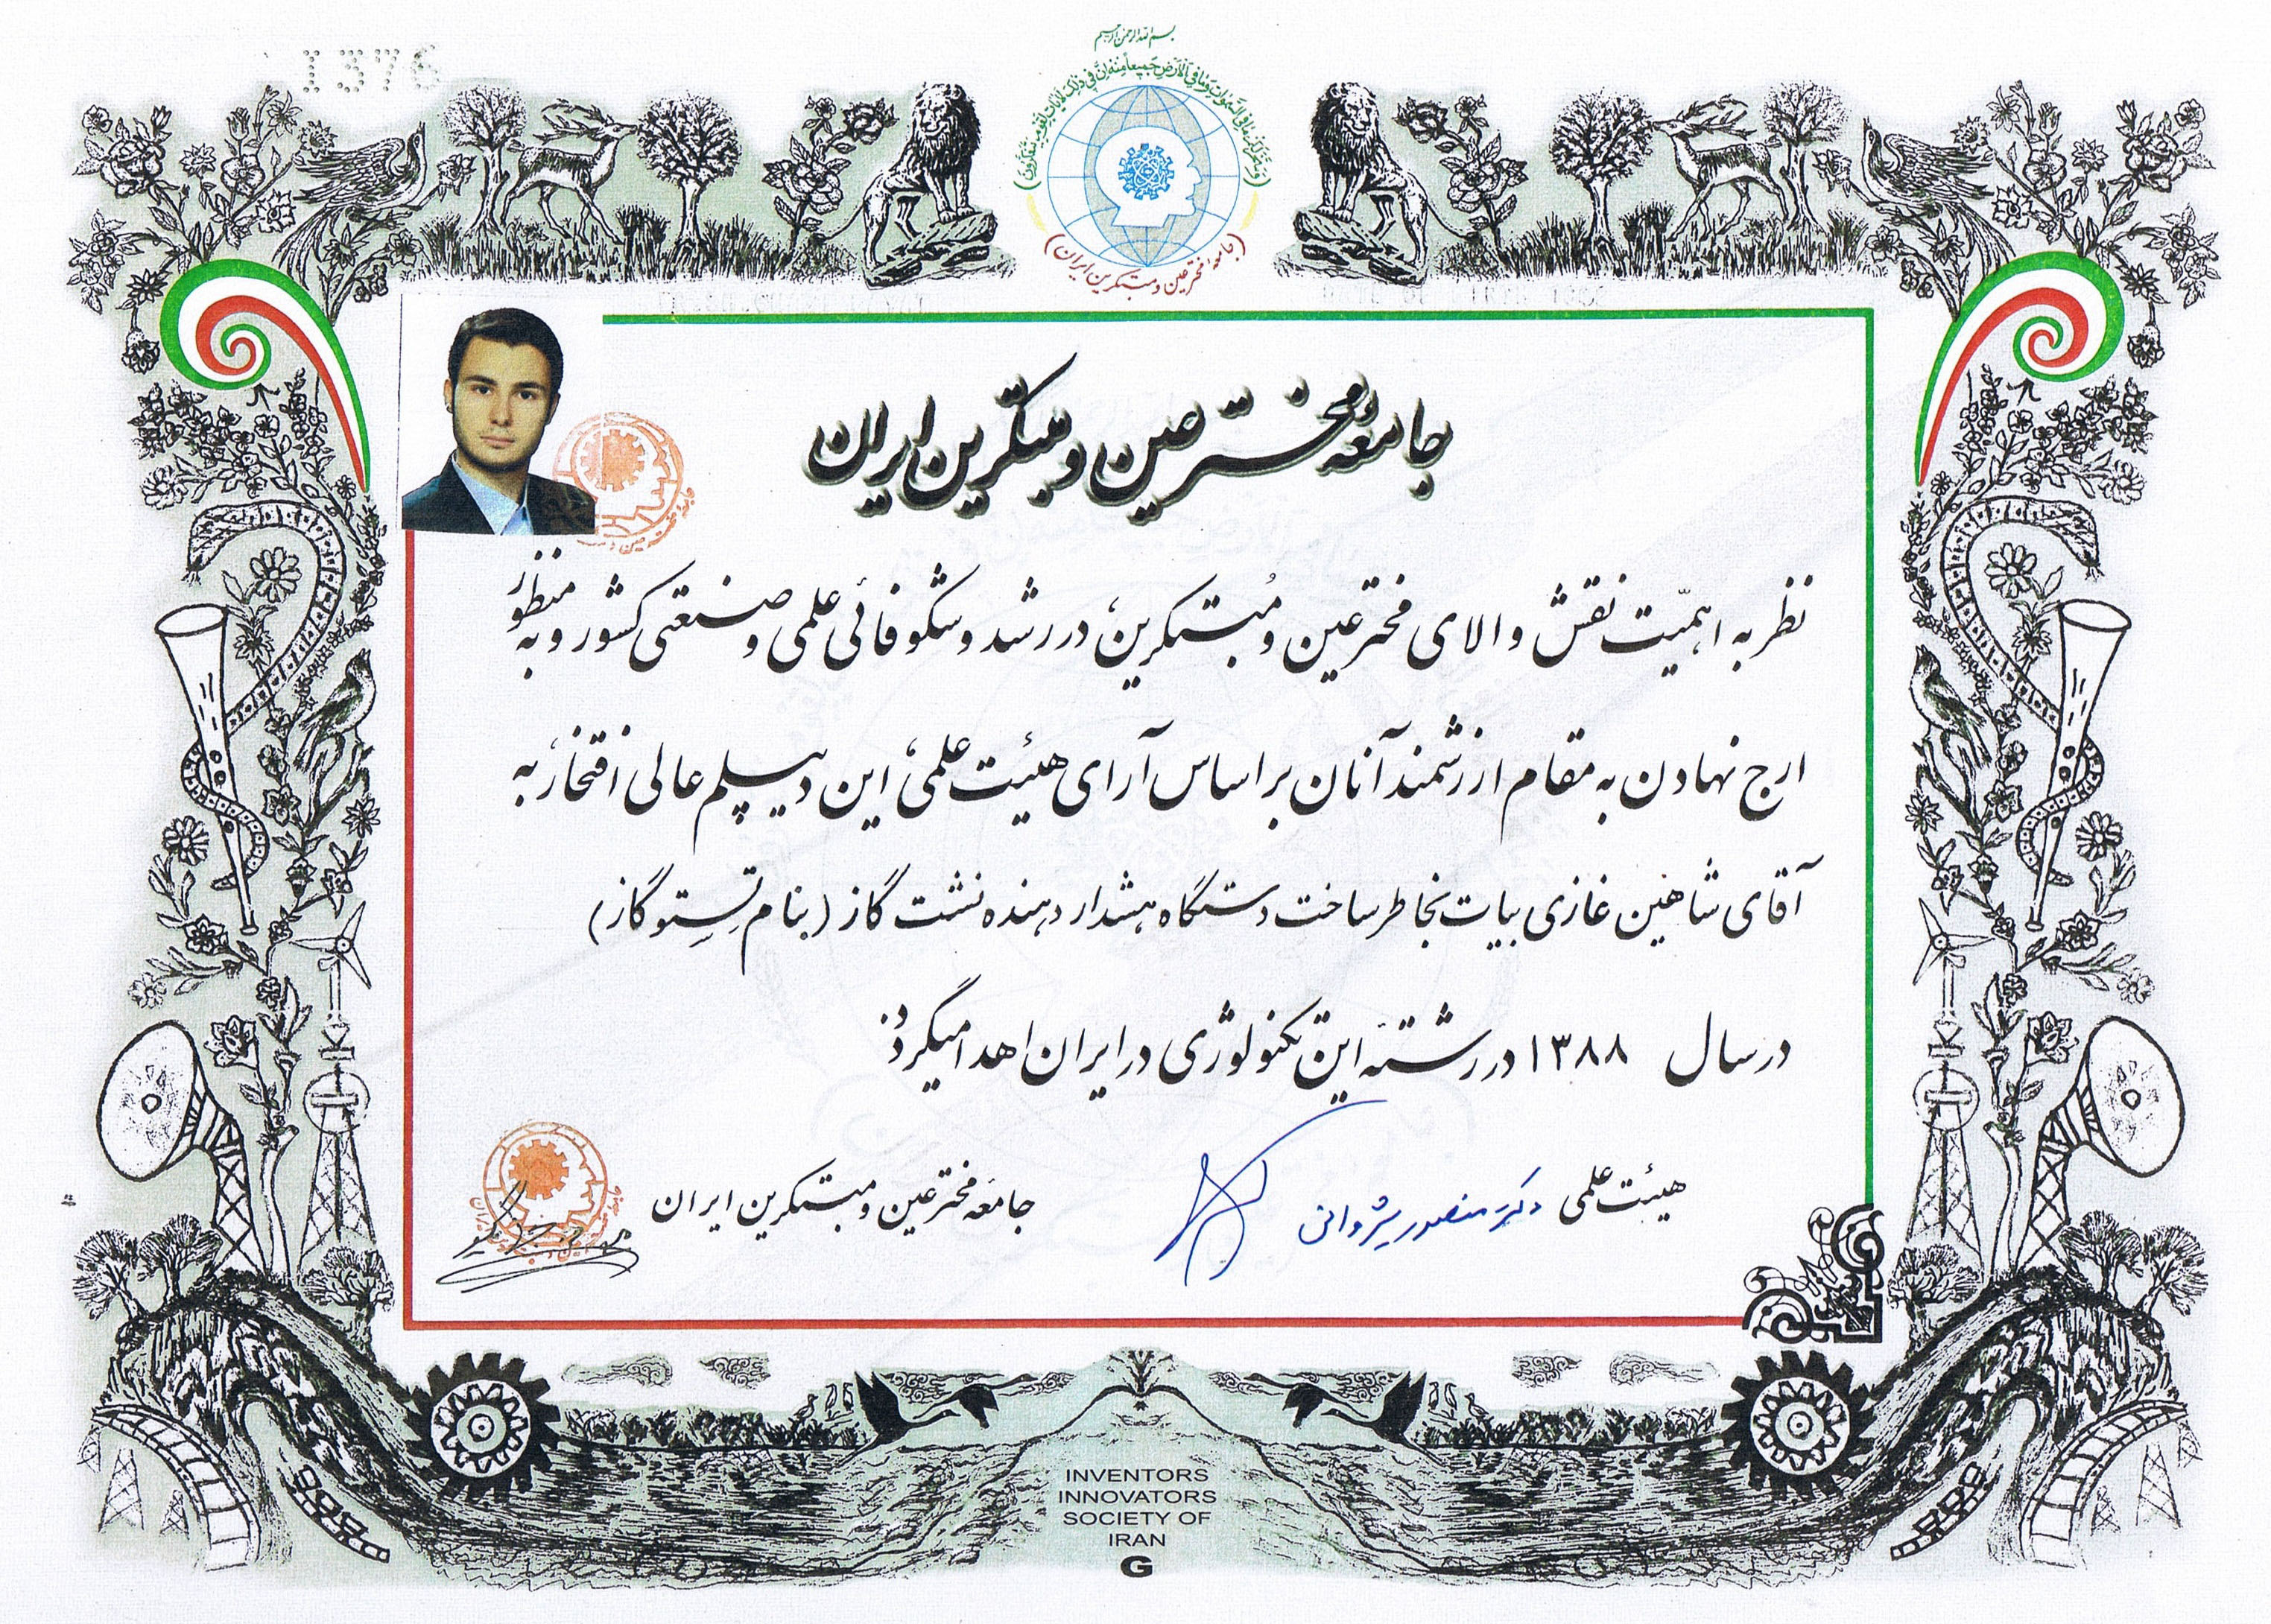 1376
بسم الله الرحمن الرحیم
(وَسَخَّرَ لَكُم مَّا فِي السَّمَوَاتِ وَمَا فِي الْأَرْضِ جَمِيعًا مِنْهُ إِنَّ فِي ذَلِكَ لَآيَاتٍ لِقَوْمٍ يَتَفَكَّرُونَ)
(جامعه مخترعین و مبتکرین ایران)
جامعه مخترعین و مبتکرین ایران
نظر به اهمیّت نقش والای مخترعین و مُبتکرین، در رشد و شکوفائی علمی و صنعتی کشور و به منظور
ارج نهادن به مقام ارزشمند آنان بر اساس آرای هیئت علمی، این دیپلم عالی افتخار، به
آقای شاهین غازی بیات بخاطر ساخت دستگاه هشدار دهنده نشت گاز (بنام تِستو گاز)
در سال ۱۳۸۸ در رشته این تکنولوژی در ایران اهدا میگردد.
هیئت علمی دکتر منصور شروانی
جامعه مخترعین و مبتکرین ایران
INVENTORS
INNOVATORS
SOCIETY OF
IRAN
G